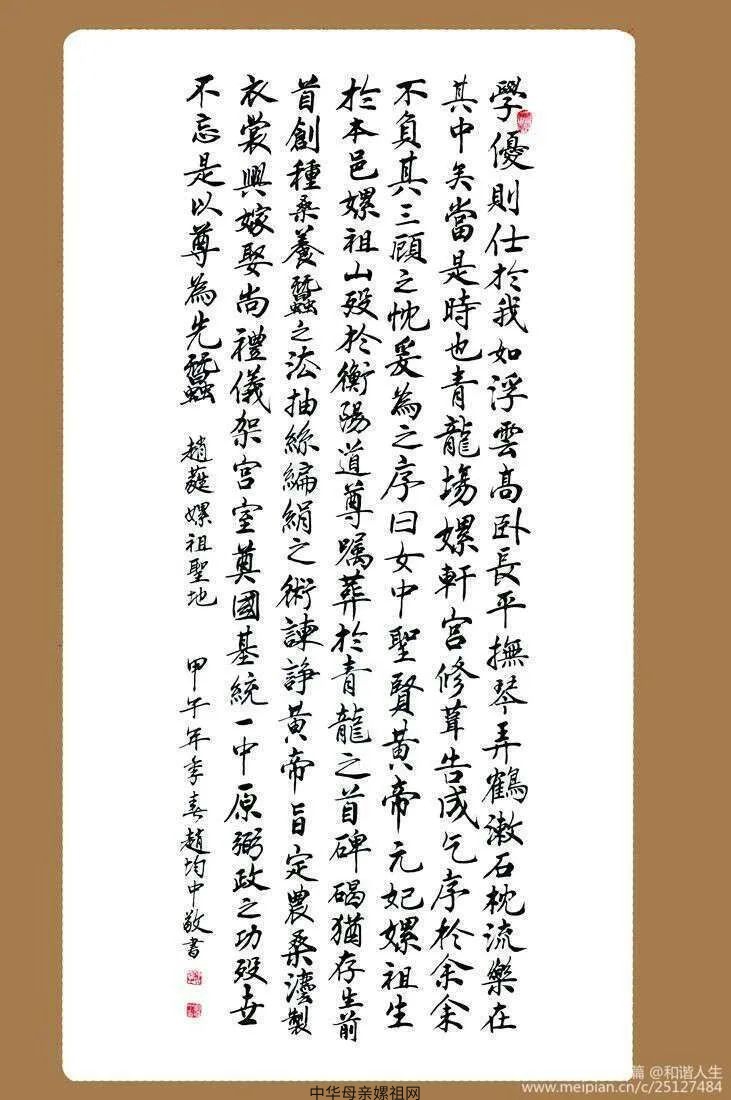 學優則仕於我如浮雲高卧長平撫琴弄鶴漱石枕流樂在
其中矣當是時也青龍場嫘軒宮修葺告成乞序於余余
不負其三顧之忱爰為之序曰女中聖賢黃帝元妃嫘祖生
於本邑嫘祖山歿於衡陽道尊囑葬於青龍之首碑碣猶存生前
首創種桑養蠶之法抽絲編絹之術諫諍黃帝旨定農桑灋製
衣裳興嫁娶尚禮儀架宮室奠國基統一中原弼政之功歿世
不忘是以尊為先蠶
趙蕤嫘祖聖地
甲午年季春趙均中敬書
中华母亲嫘祖网
篇 @和谐人生
www.meipian.cn/c/25127484